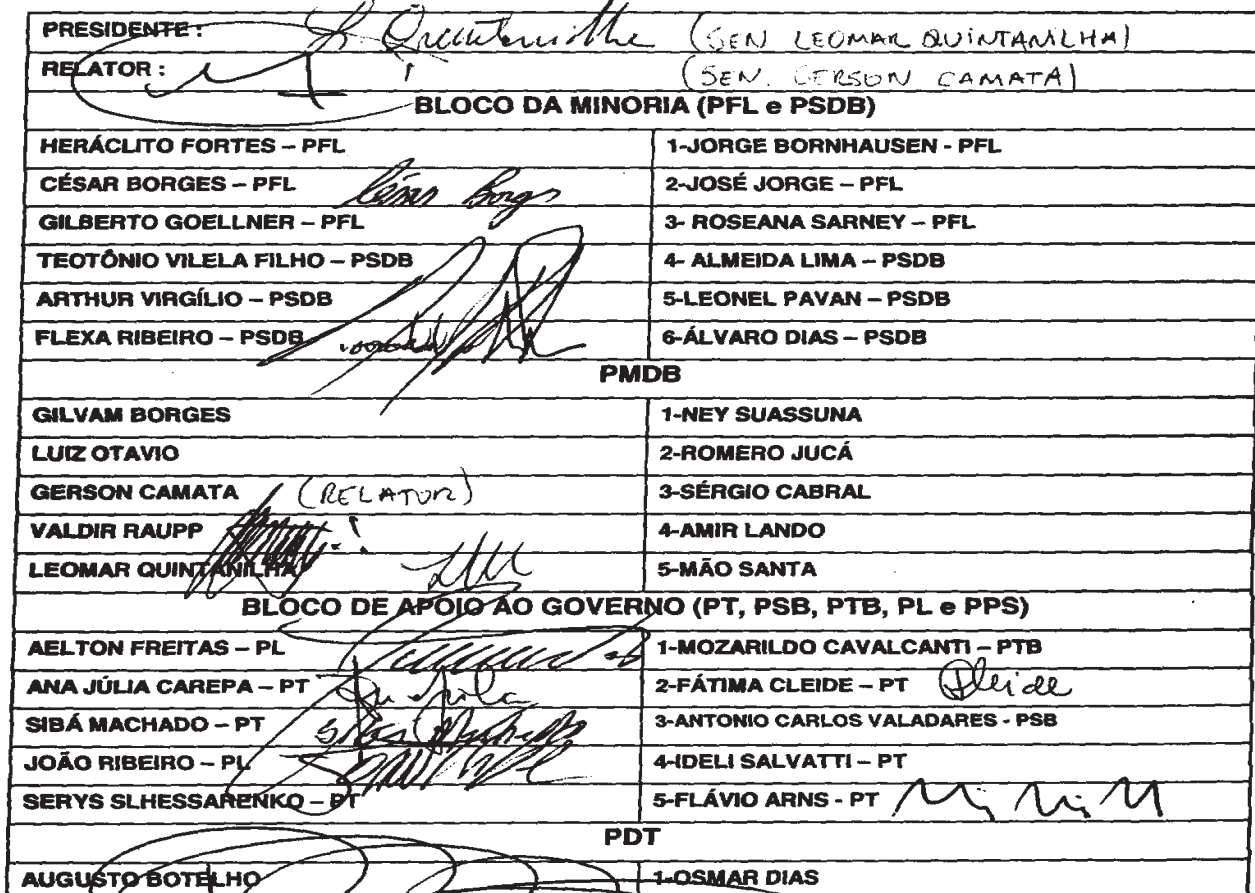 PRESIDENTE : (SEN LEOMAR QUINTANILHA)
RELATOR : (SEN. GERSON CAMATA)
BLOCO DA MINORIA (PFL e PSDB)
HERÁCLITO FORTES – PFL 1-JORGE BORNHAUSEN - PFL
CÉSAR BORGES – PFL César Borges 2-JOSÉ JORGE – PFL
GILBERTO GOELLNER – PFL 3- ROSEANA SARNEY – PFL
TEOTÔNIO VILELA FILHO – PSDB 4- ALMEIDA LIMA – PSDB
ARTHUR VIRGÍLIO – PSDB 5-LEONEL PAVAN – PSDB
FLEXA RIBEIRO – PSDB 6-ÁLVARO DIAS – PSDB
PMDB
GILVAM BORGES 1-NEY SUASSUNA
LUIZ OTAVIO 2-ROMERO JUCÁ
GERSON CAMATA (RELATOR) 3-SÉRGIO CABRAL
VALDIR RAUPP 4-AMIR LANDO
LEOMAR QUINTANILHA 5-MÃO SANTA
BLOCO DE APOIO AO GOVERNO (PT, PSB, PTB, PL e PPS)
AELTON FREITAS – PL 1-MOZARILDO CAVALCANTI – PTB
ANA JÚLIA CAREPA – PT 2-FÁTIMA CLEIDE – PT
SIBÁ MACHADO – PT 3-ANTONIO CARLOS VALADARES - PSB
JOÃO RIBEIRO – PL 4-IDELI SALVATTI – PT
SERYS SLHESSARENKO – PT 5-FLÁVIO ARNS - PT
PDT
AUGUSTO BOTELHO 1-OSMAR DIAS